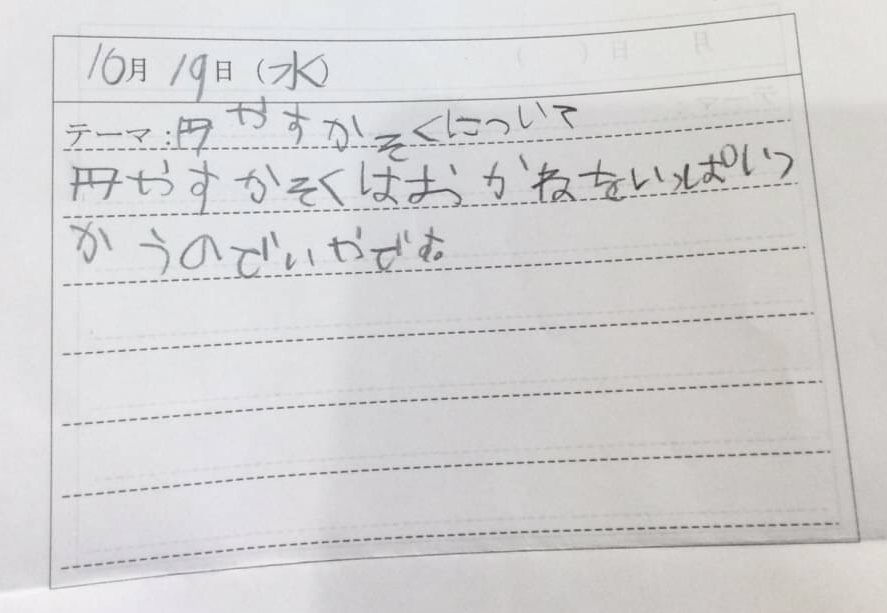 10月19日(水)
テーマ:円やすかそくについて
円やすかそくはおかねをいっぱいつ
かうのでいやです。